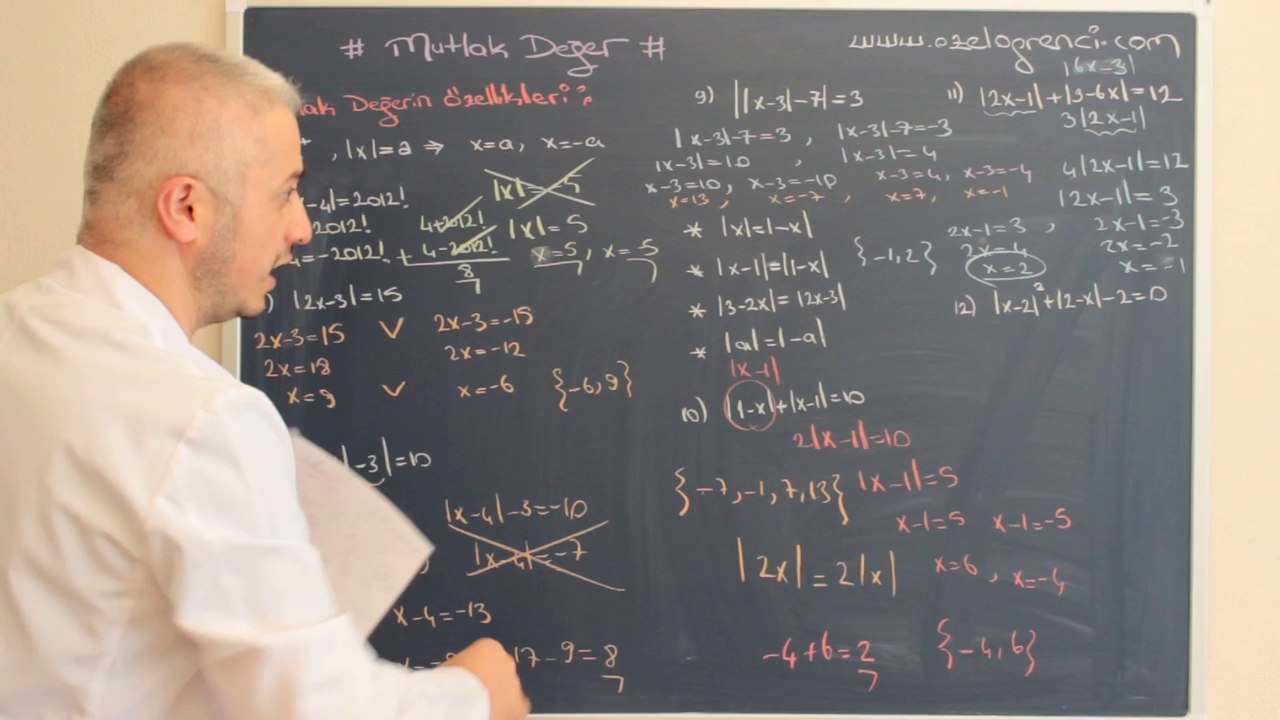 # Mutlak Değer #
www.ozelogrenci.com
Değerin özellikleri:
, |x|=a ⇒ x=a, x=-a
-4|=2012!
2012!
=-2012!
4+2012!
4-2012!
+
8
|x|=-5
|x|=5
x=5, x=-5
|2x-3|=15
2x-3=15 V 2x-3=-15
2x=18 2x=-12
x=9 V x=-6 {-6,9}
-3|=10
|x-4|-3=-10
|x-4|=-7
x-4=-13
17-9=8
9) ||x-3|-7|=3
|x-3|-7=3 , |x-3|-7=-3
|x-3|=10 , |x-3|=4
x-3=10, x-3=-10 x-3=4, x-3=-4
x=13, x=-7, x=7, x=-1
* |x|=|-x|
* |x-1|=|1-x|
* |3-2x|=|2x-3|
* |a|=|-a|
|x-1|
10) |1-x|+|x-1|=10
2|x-1|=10
{-7,-1,7,13} |x-1|=5
x-1=5 x-1=-5
|2x|=2|x|
x=6, x=-4
-4+6=2 {-4,6}
|6x-3|
11) |2x-1|+|3-6x|=12
3|2x-1|
4|2x-1|=12
|2x-1|=3
2x-1=3 , 2x-1=-3
{-1,2} 2x=4 2x=-2
x=2 x=-1
12) |x-2|²+|2-x|-2=0